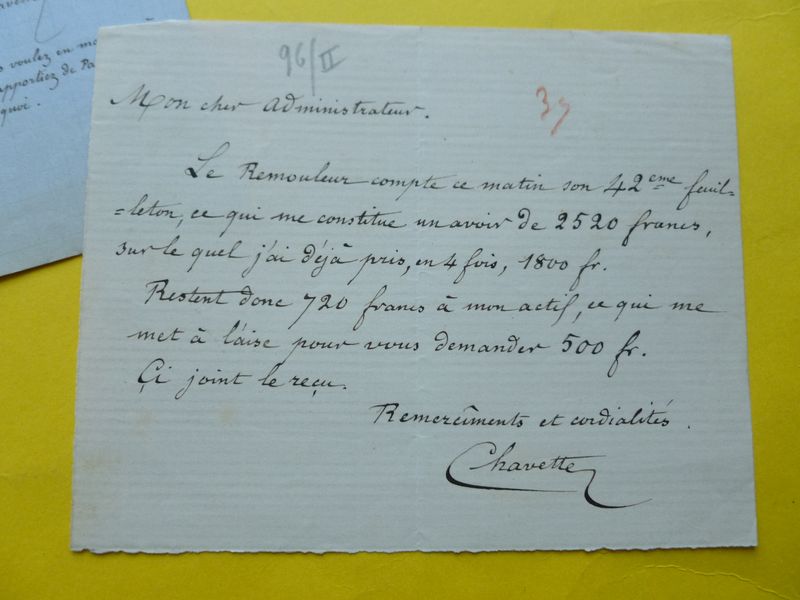 s voulez en
apportiez de Pa
quoi.
96/II
37
Mon cher Administrateur.
Le Remouleur compte ce matin son 42eme feuil=
=leton, ce qui me constitue un avoir de 2520 francs,
sur le quel j'ai déjà pris, en 4 fois, 1800 fr.
Restent donc 720 francs à mon actif, ce qui me
met à l'aise pour vous demander 500 fr.
Çi joint le reçu.
Remercîments et cordialités.
Chavette